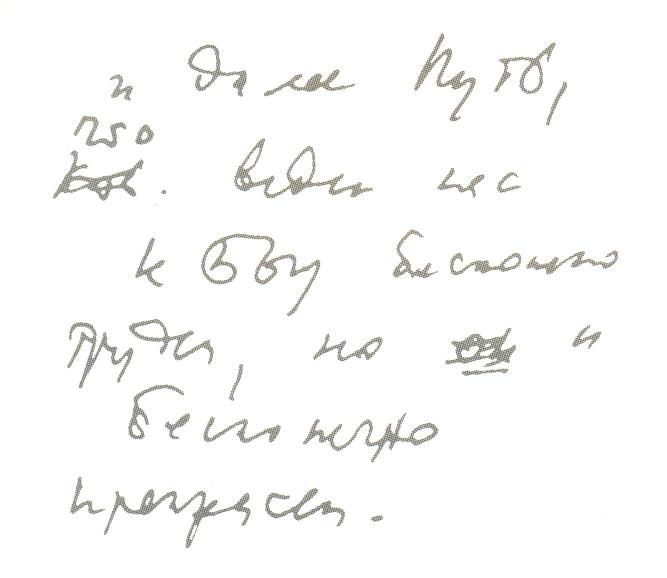 и путь,
что
ведет нас
к Богу бесконечно
труден, но и
бесконечно
прекрасен.